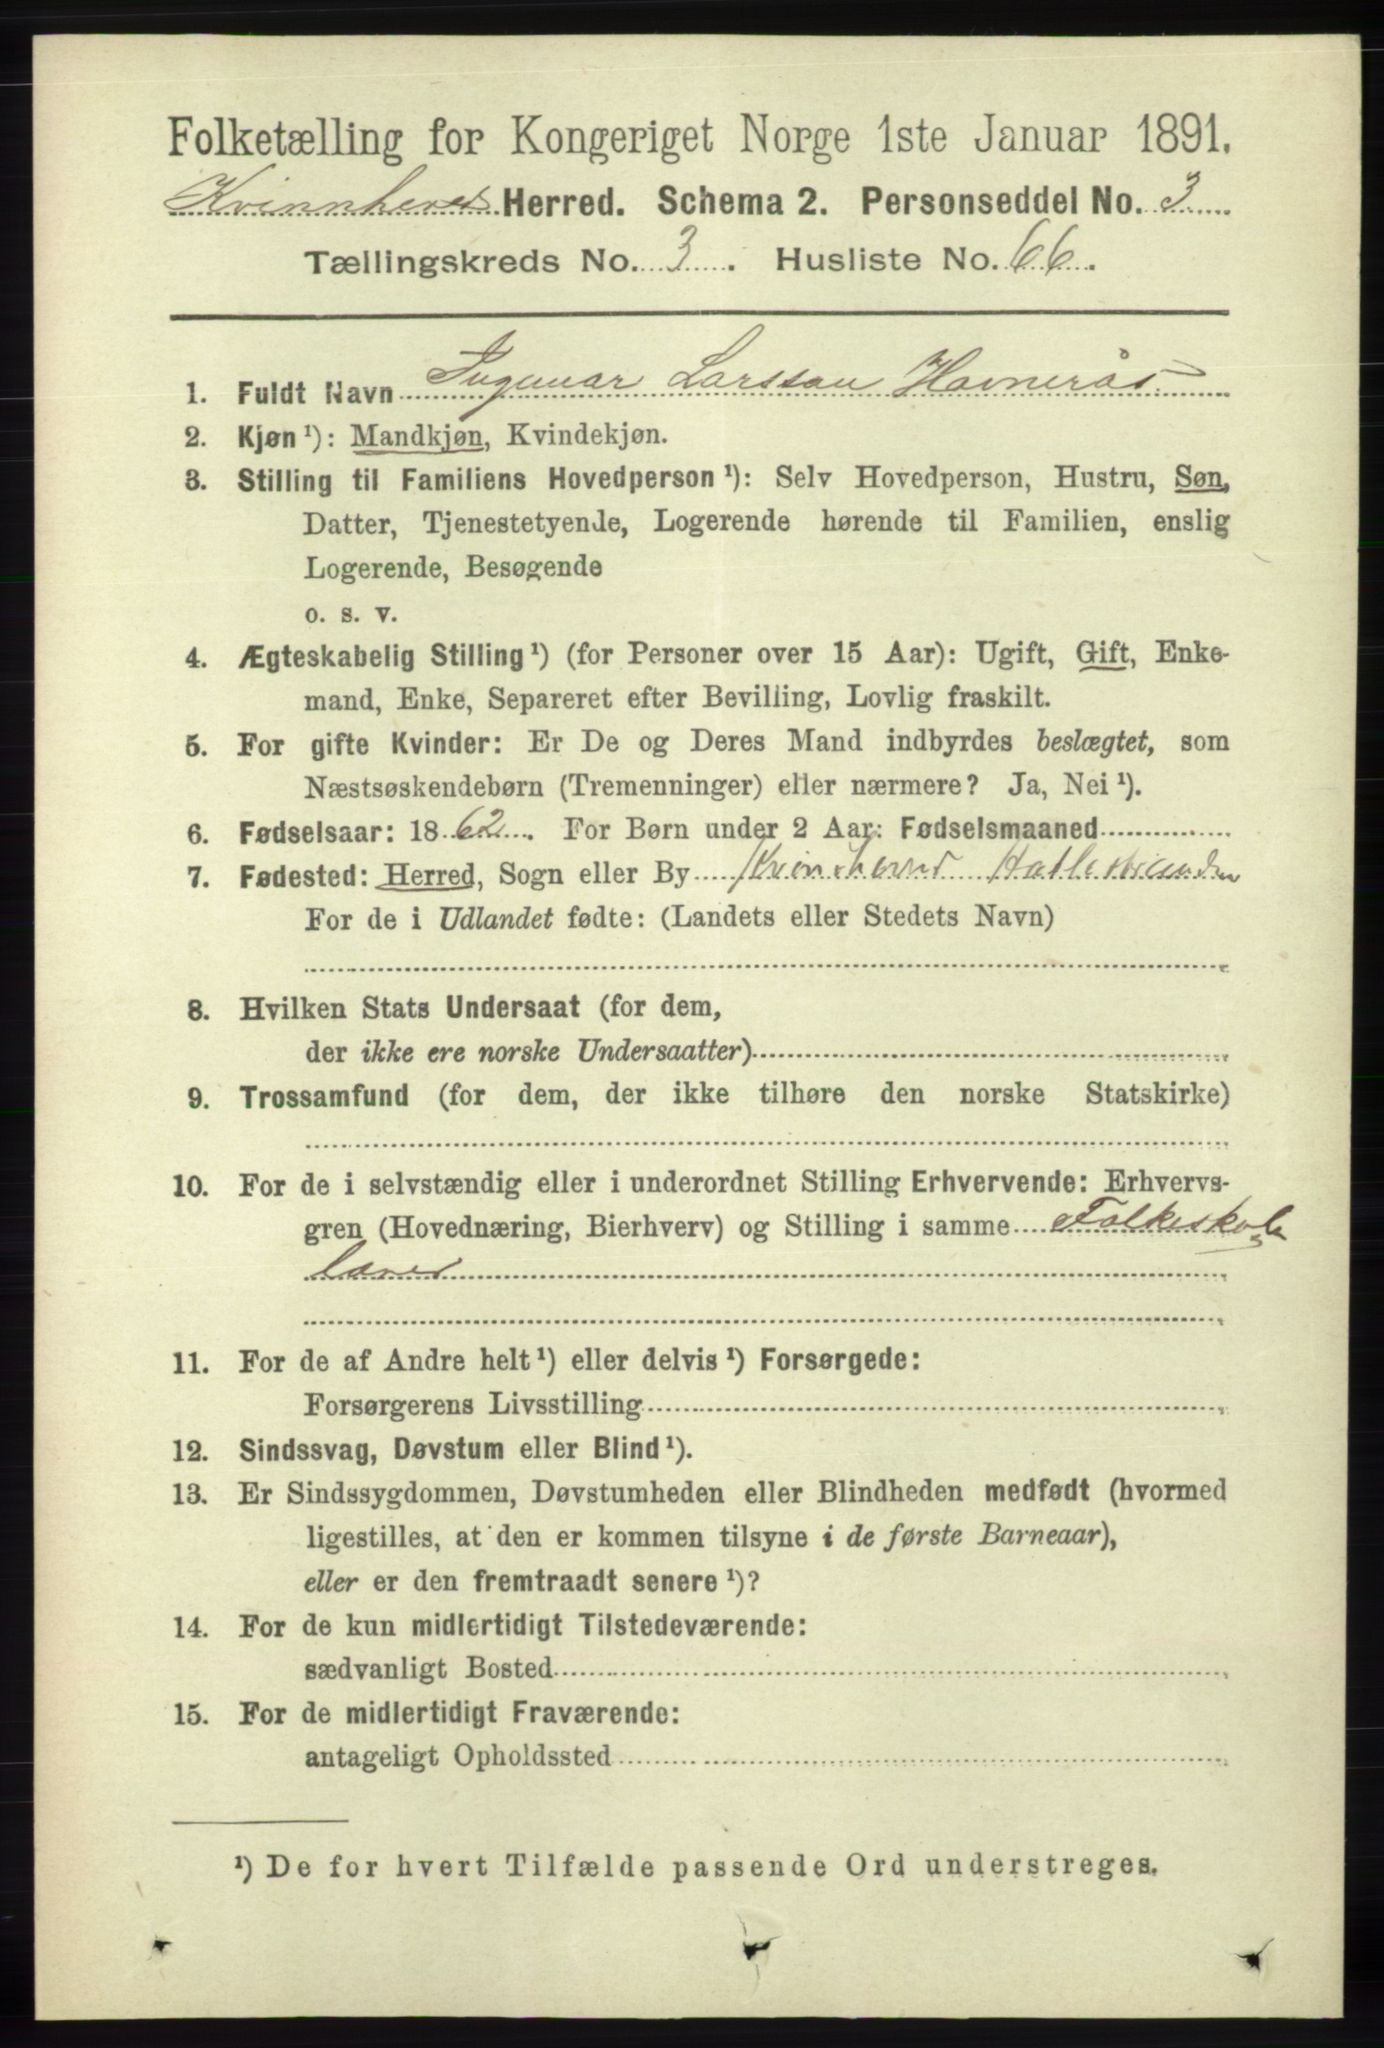 Folketælling for Kongeriget Norge 1ste Januar 1891.
Kvinnhered Herred. Schema 2. Personseddel No. 3
Tællingskreds No. 3. Husliste No. 66.
1. Fuldt Navn Ingemar Larssøn Havnerås
2. Kjøn ¹): Mandkjøn, Kvindekjøn.
3. Stilling til Familiens Hovedperson ¹): Selv Hovedperson, Hustru, Søn,
Datter, Tjenestetyende, Logerende hørende til Familien, enslig
Logerende, Besøgende
o. s. v.
4. Ægteskabelig Stilling ¹) (for Personer over 15 Aar): Ugift, Gift, Enke-
mand, Enke, Separeret efter Bevilling, Lovlig fraskilt.
5. For gifte Kvinder: Er De og Deres Mand indbyrdes beslægtet, som
Næstsøskendebørn (Tremenninger) eller nærmere? Ja, Nei ¹).
6. Fødselsaar: 1862. For Børn under 2 Aar: Fødselsmaaned
7. Fødested: Herred, Sogn eller By Kvinnherred
For de i Udlandet fødte: (Landets eller Stedets Navn)
8. Hvilken Stats Undersaat (for dem,
der ikke ere norske Undersaatter)
9. Trossamfund (for dem, der ikke tilhøre den norske Statskirke)
10. For de i selvstændig eller i underordnet Stilling Erhvervende: Erhvervs-
gren (Hovednæring, Bierhverv) og Stilling i samme Folkeskole
lærer
11. For de af Andre helt ¹) eller delvis ¹) Forsørgede:
Forsørgerens Livsstilling
12. Sindssvag, Døvstum eller Blind ¹).
13. Er Sindssygdommen, Døvstumheden eller Blindheden medfødt (hvormed
ligestilles, at den er kommen tilsyne i de første Barneaar),
eller er den fremtraadt senere ¹)?
14. For de kun midlertidigt Tilstedeværende:
sædvanligt Bosted
15. For de midlertidigt Fraværende:
antageligt Opholdssted
¹) De for hvert Tilfælde passende Ord understreges.